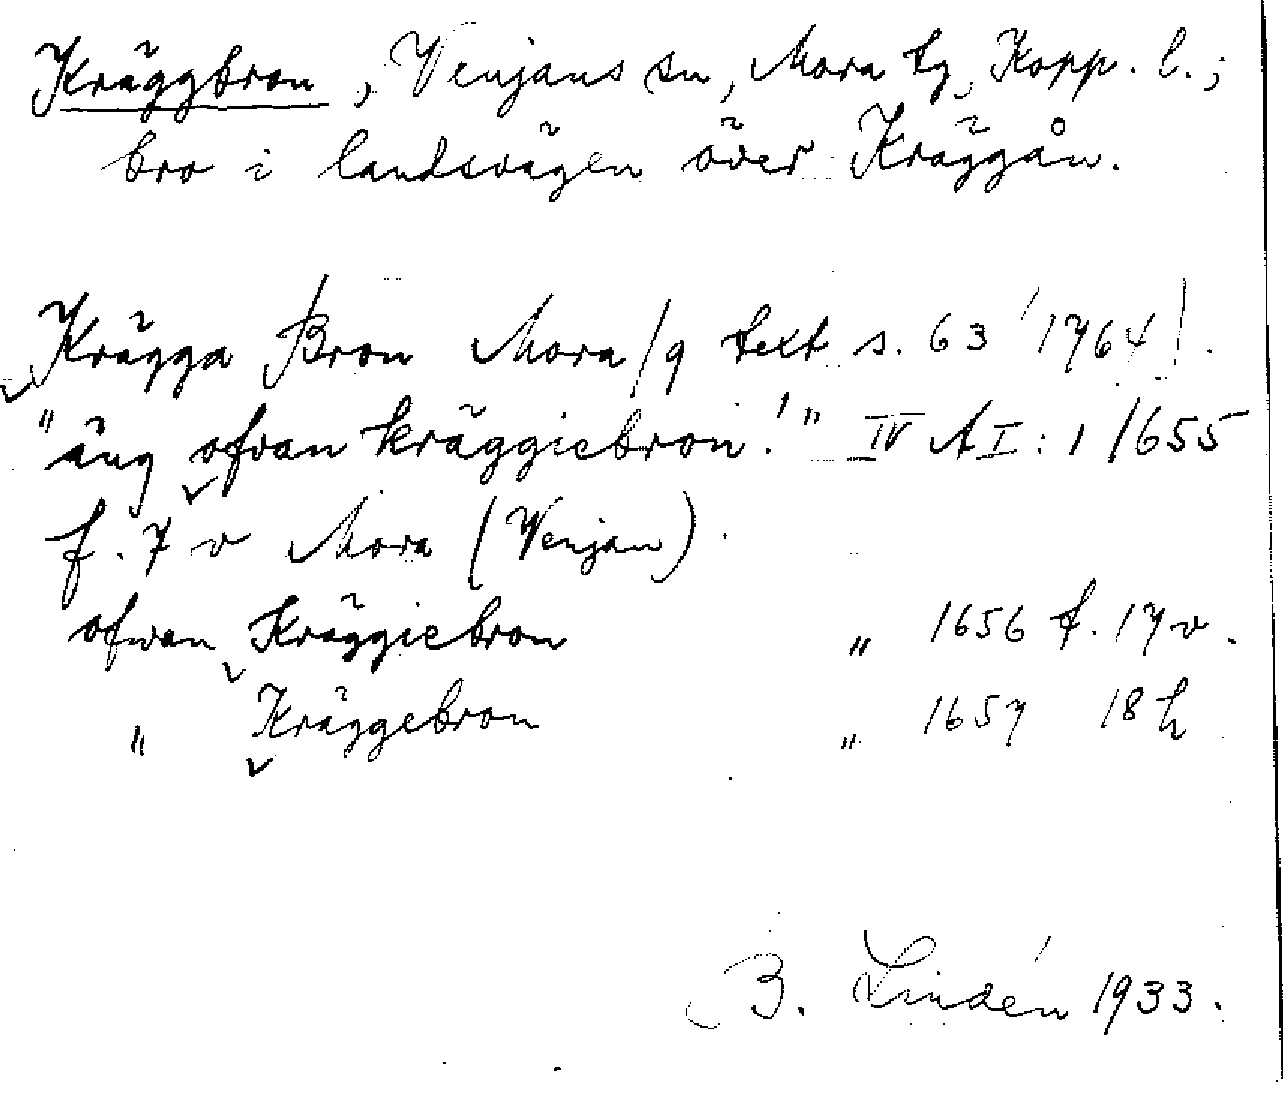 Kräggbron, Venjans sn, Mora tg, Kopp. l.;
bro i landsvägen över Kräggån.
Krägga Bron Mora/9 text s. 63 1764.
"äng ofvan kräggiebron!" IV A I:1 1655
f. 7 v Mora (Venjan).
ofwan Kräggiebron " 1656 f. 17 v.
" Kräggebron " 1657 18 h
B. Lindén 1933.